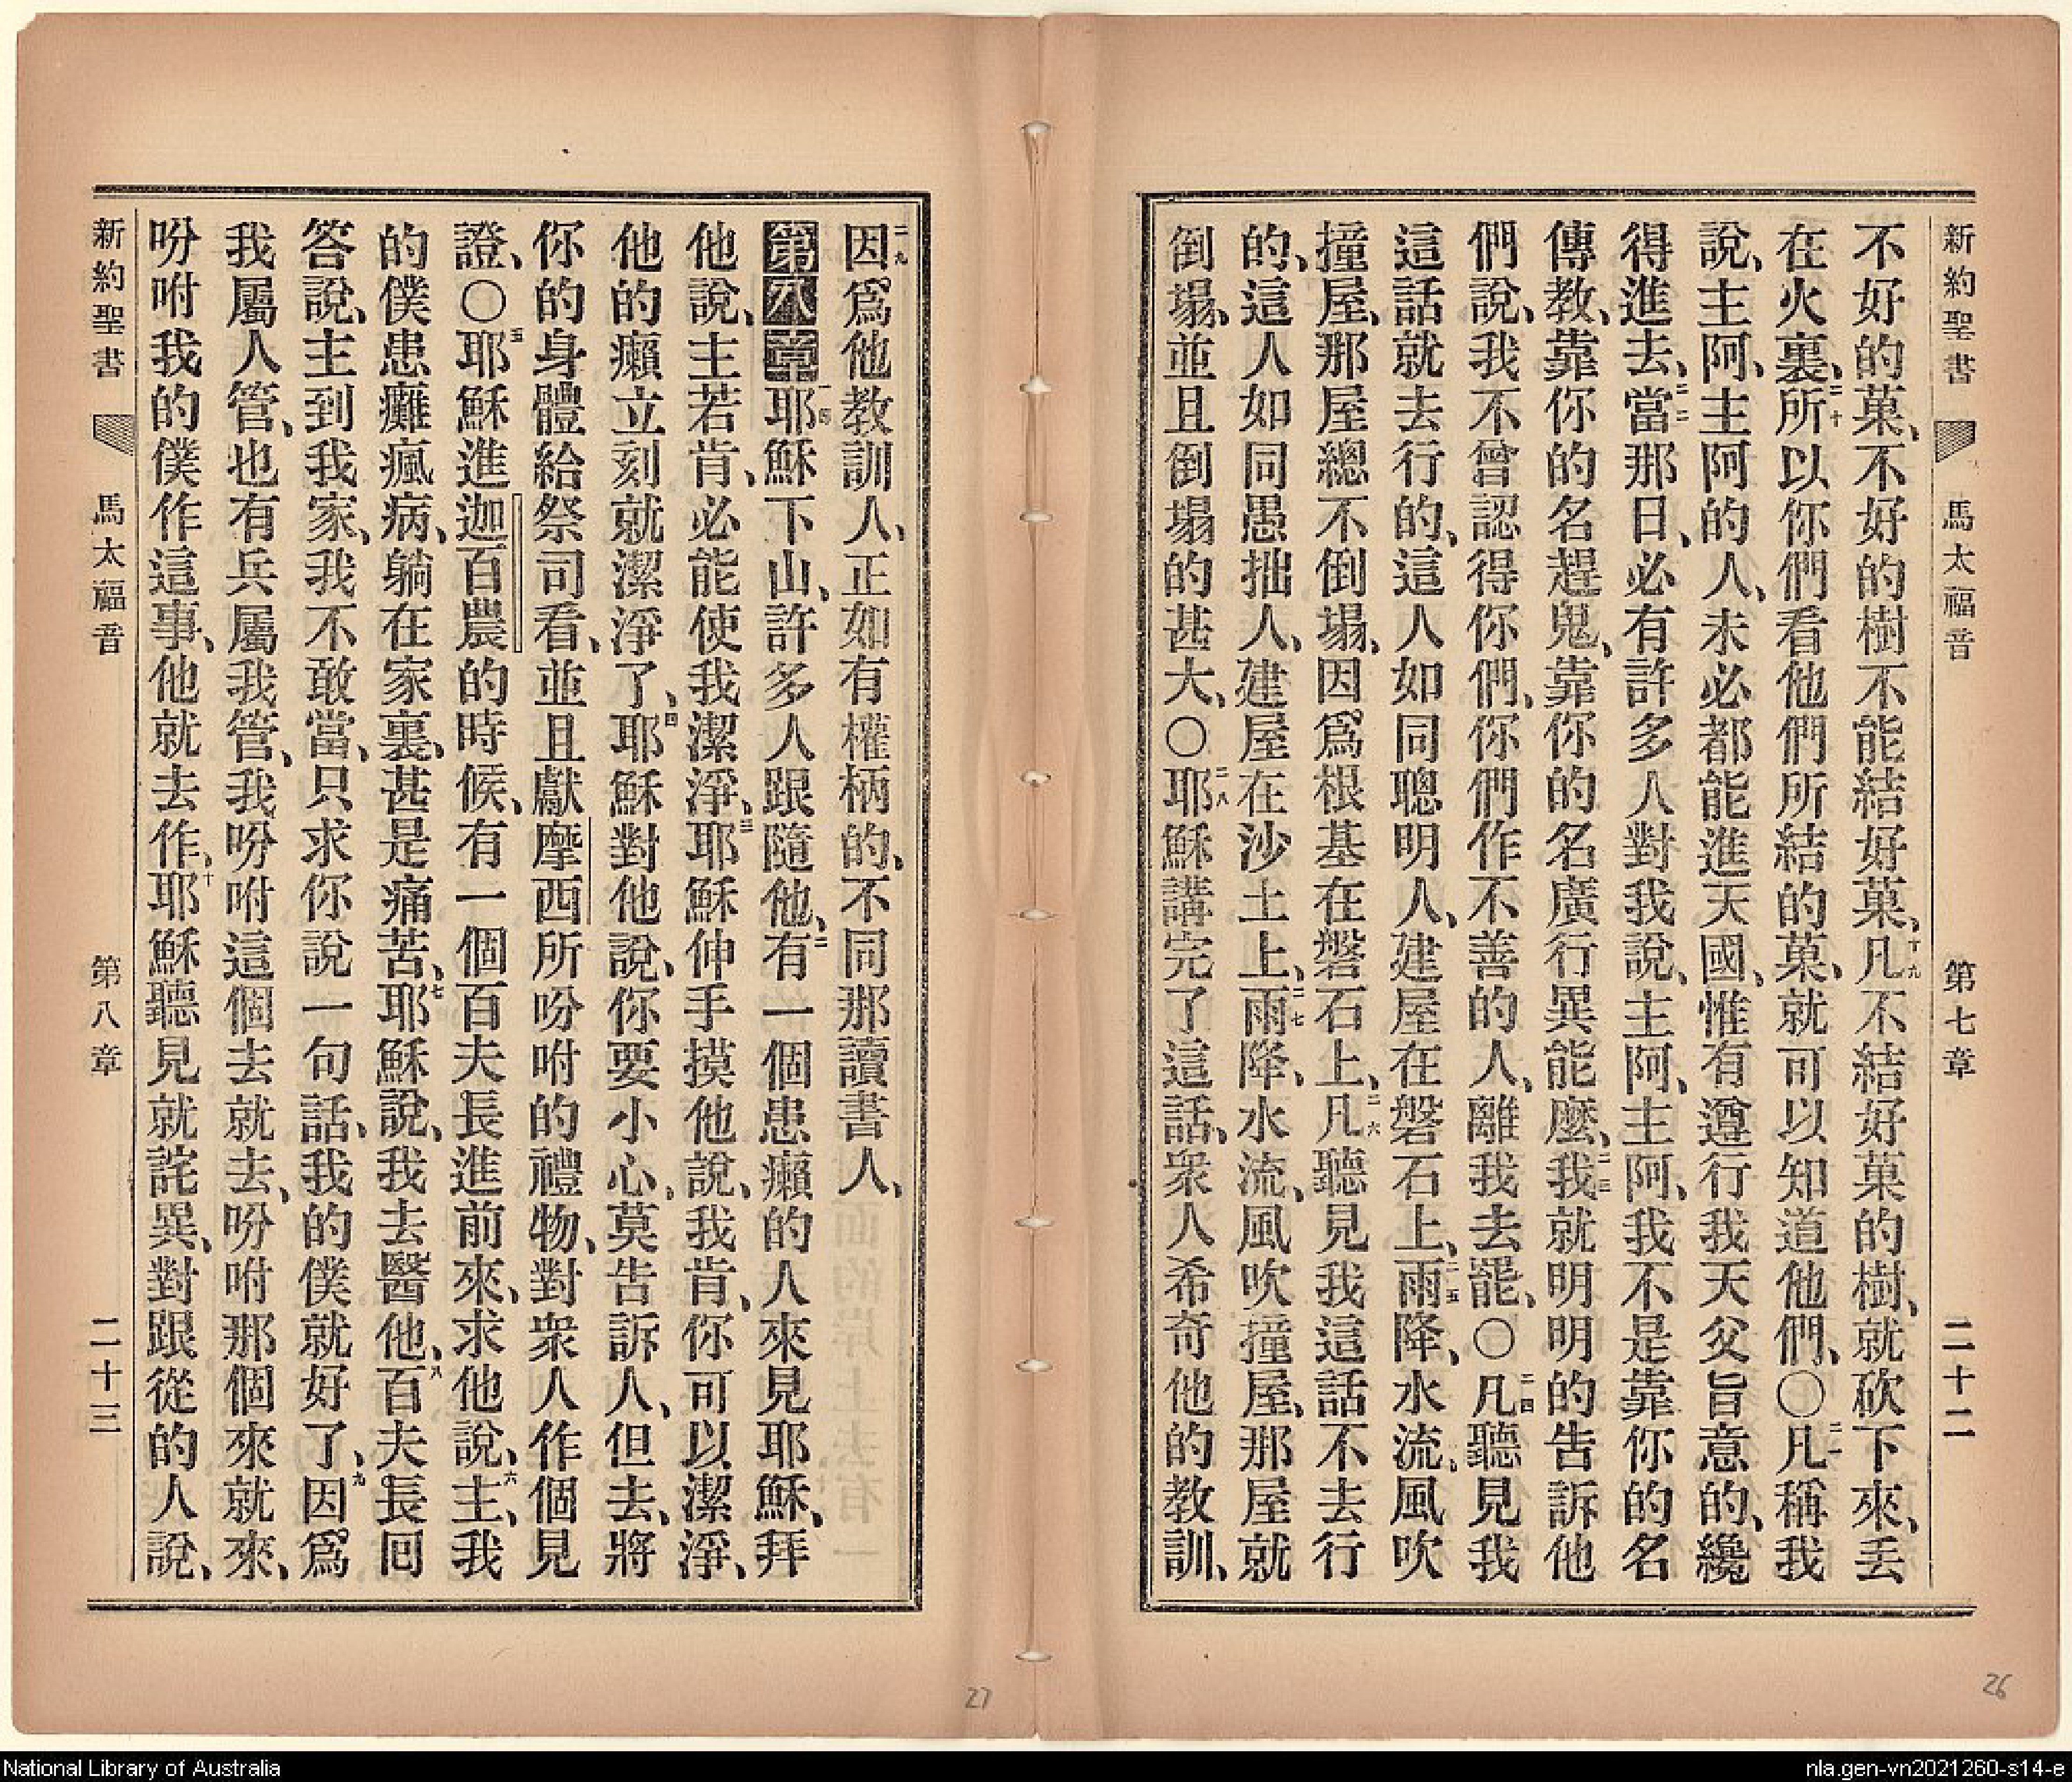 新約聖書 馬太福音 第七章 二十二
不好的菓、不好的樹不能結好菓、十九凡不結好菓的樹、就砍下來、丢
在火裏、二十所以你們看他們所結的菓、就可以知道他們、〇二一凡稱我
說、主阿、主阿的人、未必都能進天國、惟有遵行我天父旨意的、纔
得進去、二二當那日、必有許多人對我說、主阿、主阿、我不是靠你的名
傳教、靠你的名趕鬼、靠你的名廣行異能麼、二三我就明明的告訴他
們說、我不曾認得你們、你們作不善的人、離我去罷、〇二四凡聽見我
這話就去行的、這人如同聰明人、建屋在磐石上、二五雨降、水流、風吹
撞屋、那屋總不倒塌、因爲根基在磐石上、二六凡聽見我這話不去行
的、這人如同愚拙人、建屋在沙土上、二七雨降、水流、風吹撞屋、那屋就
倒塌、並且倒塌的甚大、〇二八耶穌講完了這話、衆人希奇他的教訓、
二九因爲他教訓人、正如有權柄的、不同那讀書人、
第八章一耶穌下山、許多人跟隨他、二有一個患癩的人來見耶穌、拜
他說、主若肯、必能使我潔淨、三耶穌伸手摸他說、我肯、你可以潔淨、
他的癩立刻就潔淨了、四耶穌對他說、你要小心、莫告訴人、但去、將
你的身體給祭司看、並且獻摩西所吩咐的禮物、對衆人作個見
證、〇五耶穌進迦百農的時候、有一個百夫長進前來、求他說、六主、我
的僕患癱瘋病、躺在家裏、甚是痛苦、七耶穌說、我去醫他、八百夫長回
答說、主到我家、我不敢當、只求你說一句話、我的僕就好了、九因爲
我屬人管、也有兵屬我管、我吩咐這個去就去、吩咐那個來就來、
吩咐我的僕作這事、他就去作、十耶穌聽見就詫異、對跟從的人說、
新約聖書 馬太福音 第八章 二十三
27
26
National Library of Australia
nla.gen-vn2021260-s14-e